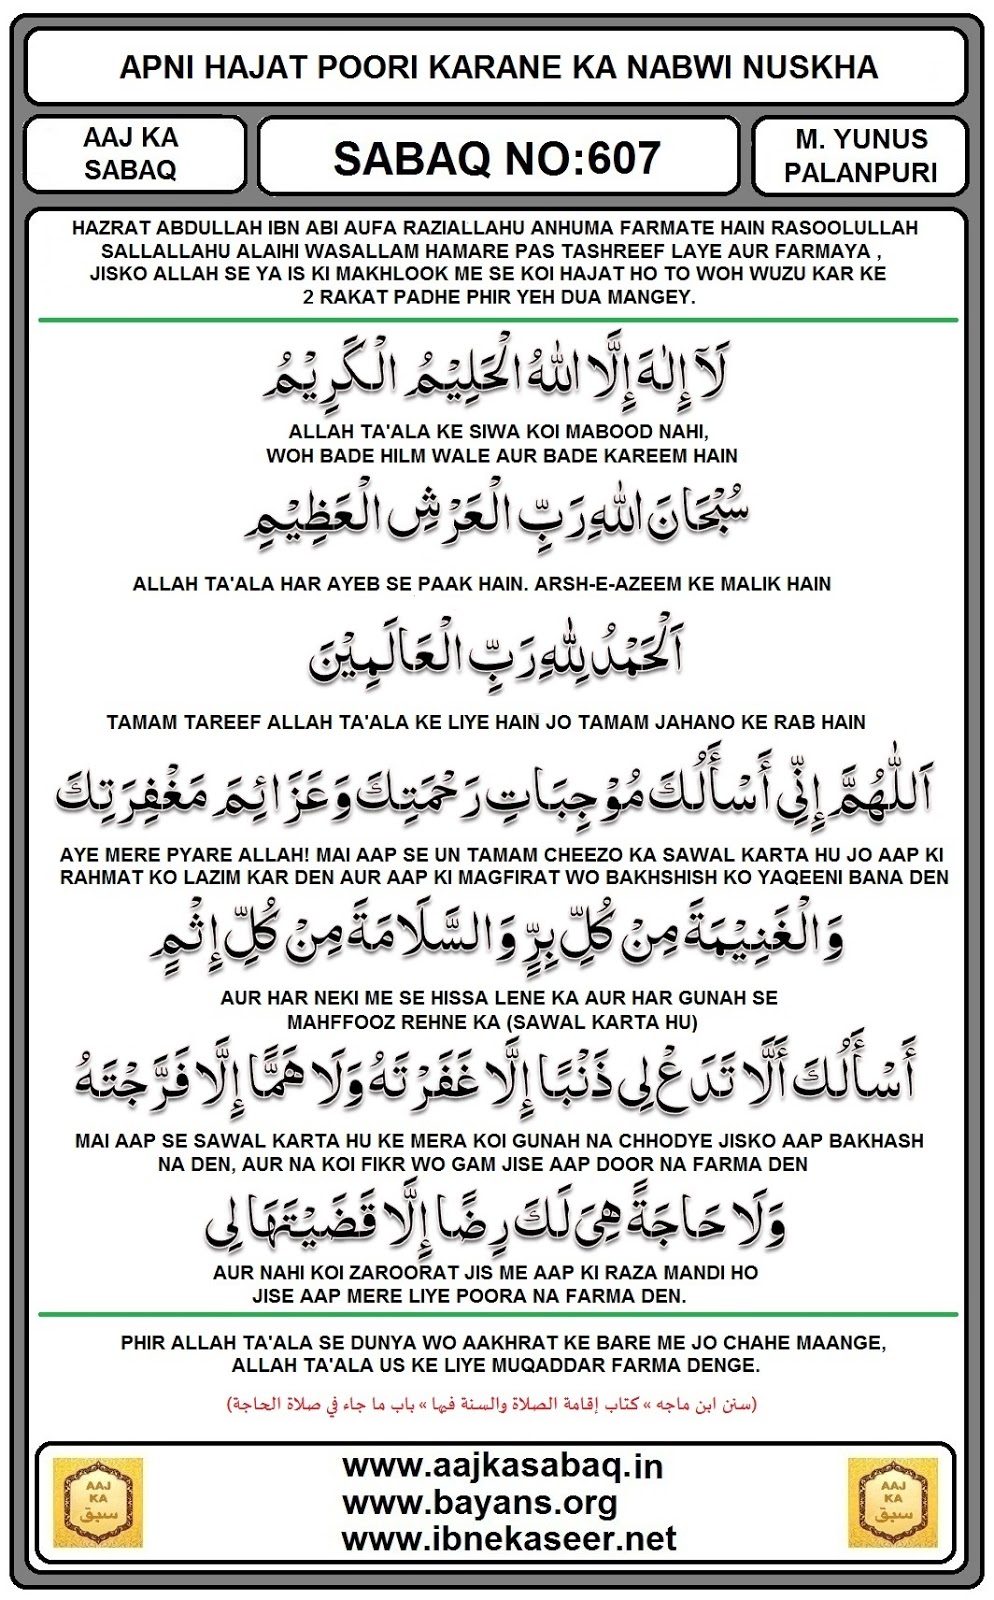 APNI HAJAT POORI KARANE KA NABWI NUSKHA
AAJ KA
SABAQ
SABAQ NO:607
M. YUNUS
PALANPURI
HAZRAT ABDULLAH IBN ABI AUFA RAZIALLAHU ANHUMA FARMATE HAIN RASOOLULLAH
SALLALLAHU ALAIHI WASALLAM HAMARE PAS TASHREEF LAYE AUR FARMAYA ,
JISKO ALLAH SE YA IS KI MAKHLOOK ME SE KOI HAJAT HO TO WOH WUZU KAR KE
2 RAKAT PADHE PHIR YEH DUA MANGEY.
لَآ إِلٰهَ إِلَّا اللهُ الْحَلِيْمُ الْكَرِيْمُ
ALLAH TA'ALA KE SIWA KOI MABOOD NAHI,
WOH BADE HILM WALE AUR BADE KAREEM HAIN
سُبْحَانَ اللهِ رَبِّ الْعَرْشِ الْعَظِيْمِ
ALLAH TA'ALA HAR AYEB SE PAAK HAIN. ARSH-E-AZEEM KE MALIK HAIN
اَلْحَمْدُ لِلّٰهِ رَبِّ الْعَالَمِيْنَ
TAMAM TAREEF ALLAH TA'ALA KE LIYE HAIN JO TAMAM JAHANO KE RAB HAIN
اَللّٰهُمَّ إِنِّي أَسْأَلُكَ مُوْجِبَاتِ رَحْمَتِكَ وَعَزَائِمَ مَغْفِرَتِكَ
AYE MERE PYARE ALLAH! MAI AAP SE UN TAMAM CHEEZO KA SAWAL KARTA HU JO AAP KI
RAHMAT KO LAZIM KAR DEN AUR AAP KI MAGFIRAT WO BAKHSHISH KO YAQEENI BANA DEN
وَالْغَنِيْمَةَ مِنْ كُلِّ بِرٍّ وَالسَّلَامَةَ مِنْ كُلِّ إِثْمٍ
AUR HAR NEKI ME SE HISSA LENE KA AUR HAR GUNAH SE
MAHFFOOZ REHNE KA (SAWAL KARTA HU)
أَسْأَلُكَ أَلَّا تَدَعْ لِي ذَنْبًا إِلَّا غَفَرْتَهُ وَلَا هَمًّا إِلَّا فَرَّجْتَهُ
MAI AAP SE SAWAL KARTA HU KE MERA KOI GUNAH NA CHHODYE JISKO AAP BAKHASH
NA DEN, AUR NA KOI FIKR WO GAM JISE AAP DOOR NA FARMA DEN
وَلَا حَاجَةً هِيَ لَكَ رِضًا إِلَّا قَضَيْتَهَا لِي
AUR NAHI KOI ZAROORAT JIS ME AAP KI RAZA MANDI HO
JISE AAP MERE LIYE POORA NA FARMA DEN.
PHIR ALLAH TA'ALA SE DUNYA WO AAKHRAT KE BARE ME JO CHAHE MAANGE,
ALLAH TA'ALA US KE LIYE MUQADDAR FARMA DENGE.
(سنن ابن ماجه » كتاب إقامة الصلاة والسنة فيها » باب ما جاء في صلاة الحاجة)
AAJ
KA
سبق
www.aajkasabaq.in
www.bayans.org
www.ibnekaseer.net
AAJ
KA
سبق